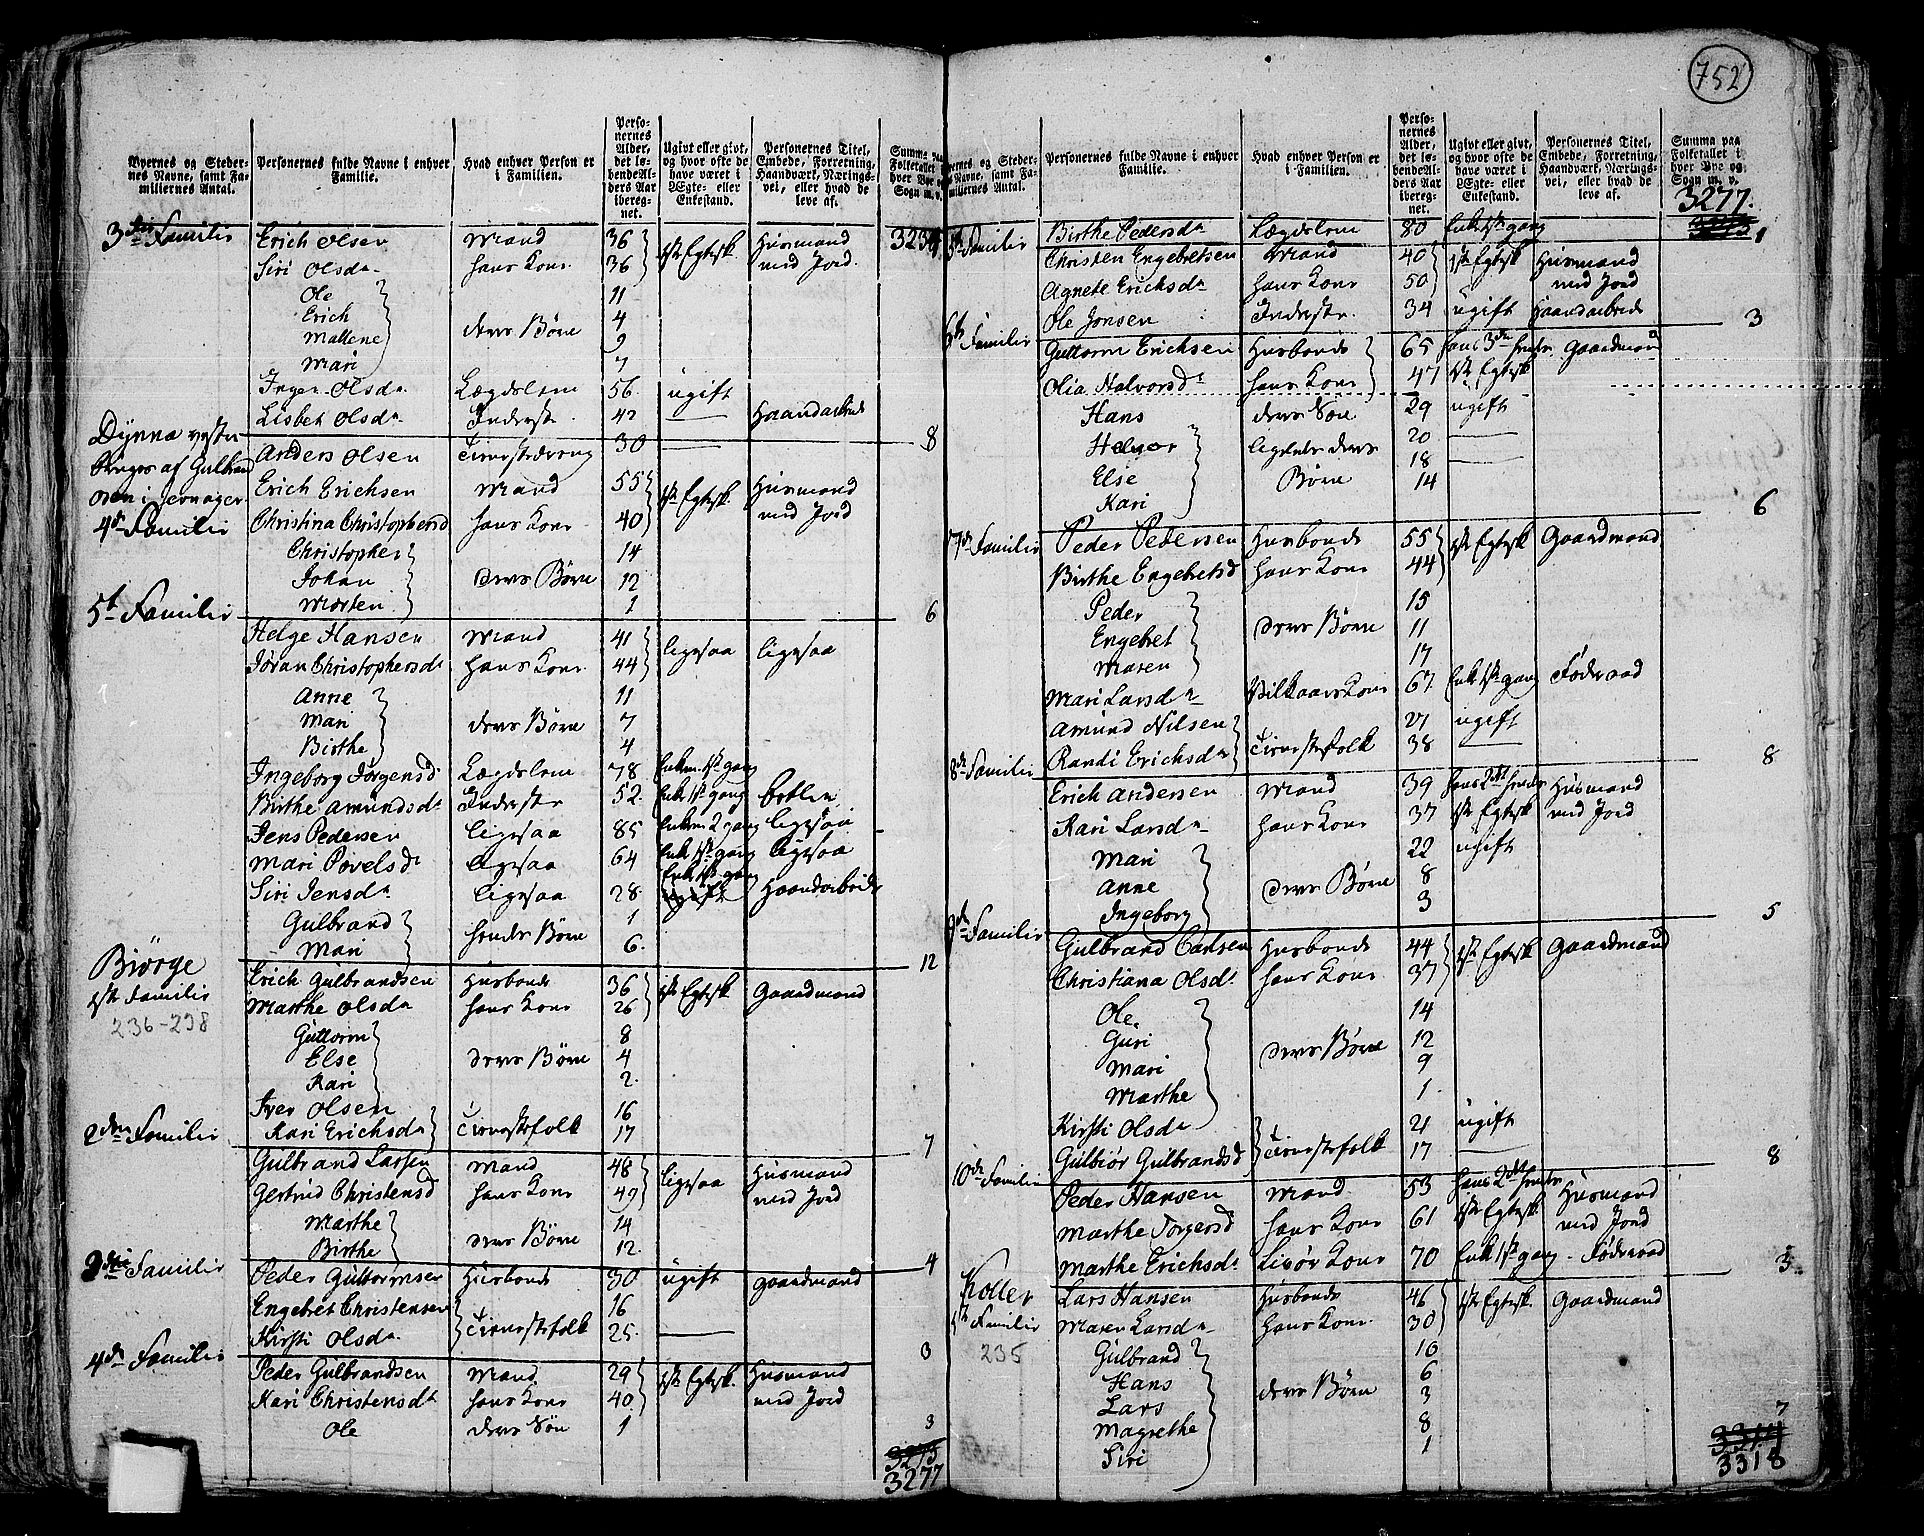 752
Byernes og Steder-
nes Navne, samt Fa-
miliernes Antal.
Personernes fulde Navne i enhver
Familie.
Hvad enhver Person er
i Familien.
Perso-
nernes
Alder,
det lø-
bende Al-
ders Aar
ibereg-
net.
Ugivt eller givt,
og hvor ofte de
have været i
Ægte- eller
Enkestand.
Personernes Titel,
Embede, Forretning,
Haandværk, Nærings-
vei, eller hvad de
leve af.
Summa paa
Folketallet i
hver Bye og
Sogn m. v.
3die Familie Erich Olsen Mand 36 1ste Egtesk Huusmand
Siri Olsdr hans Kone 36 med Jord
Ole 11
Erich 4
Mallene deres Børn 9
Mari 7
Inger Olsdr Lægdslem 56 ugift
Lisbet Olsdr Inderste 42 — Haandarbeide
8
Dynna vestre
Anders Olsen Tienestedreng 30 —
bruges af Gulbrand
Olsen i Jernager
Erich Erichsen Mand 55 1ste Egtesk Huusmand
4de Familie Christina Christophersd hans Kone 40 med Jord
Christopher 14
Johan deres Børn 12
Morten 1
6
5te Familie
Helge Hansen Mand 41 ligesaa ligesaa
Jøran Christophersdr hans Kone 44
Anne 11
Mari deres Børn 7
Birthe 4
Ingeborg Jørgensd Lægdslem 78 Enke 1ste gang
Birthe Amundsdr Inderste 52 Enke 1ste gang betler
Jens Pedersen ligesaa 85 Enkem 2 gang ligesaa
Mari Povelsdr ligesaa 64 Enke 1ste gang ligesaa
Siri Jensdr ligesaa 28 Enke 1ste gang Haandarbeide
Gulbrand 1
Mari hendes Børn 6
12
Biörge
1ste Familie
236-238
Erich Gulbrandsen Husbonde 36 1ste Egtesk Gaardmand
Marthe Olsdr hans Kone 26
Guttorm 8
Else deres Børn 4
Kari 2
Iver Olsen 16
Kari Erichsdr Tienestefolk 17
7
2den Familie
Gulbrand Larsen Mand 48 ligesaa Huusmand
Gertrud Christensd hans Kone 49 med Jord
Marthe 14
Birthe deres Børn 12
4
3die Familie
Peder Guttormsen Husbonde 30 ugift gaardmand
Engebret Christensen 16
Kirsti Olsdr Tienestefolk 25 —
3
4de Familie
Peder Gulbrandsen Mand 29 1ste Egtesk Huusmand
Kari Christensdr hans Kone 40 med Jord
Ole deres Søn 1
3
3275
3277
Byernes og Steder-
nes Navne, samt Fa-
miliernes Antal.
Personernes fulde Navne i enhver
Familie.
Hvad enhver Person er
i Familien.
Perso-
nernes
Alder,
det lø-
bende Al-
ders Aar
ibereg-
net.
Ugivt eller givt,
og hvor ofte de
have været i
Ægte- eller
Enkestand.
Personernes Titel,
Embede, Forretning,
Haandværk, Nærings-
vei, eller hvad de
leve af.
Summa paa
Folketallet i
hver Bye og
Sogn m. v.
3277.
3275
Birthe Pedersdr Lægdslem 80 Enke 1ste gang
1
5te Familie Christen Engebretsen Mand 40 1ste Egtesk Huusmand
Agnete Erichsdr hans Kone 50 med Jord
Ole Jonsen Inderste 34 ugift Haandarbeide
3
6te Familie Guttorm Erichsen Husbonde 65 hans 3die hendes Gaardmand
Olia Halvorsdr hans Kone 47 1ste Egtesk
Hans deres Søn 29 ugift
Helvor ligeledes deres 20 —
Else Børn 18 —
Kari 14
6
7de Familie Peder Pedersen Husbonde 55 1ste Egtesk Gaardmand
Birthe Engebretsd hans Kone 44
Peder 15
Engebret deres Børn 11
Maren 17
Mari Larsdr Vilkaars Kone 67 Enke 1ste gang Føderaad
Amund Nilsen 21 ugift
Randi Erichsdr Tienestefolk 38 —
8
8de Familie
Erich Andersen Mand 39 hans 2det hendes Huusmand
Kari Larsdr hans Kone 37 1ste Egtesk med Jord
Mari 22 ugift
Anne deres Børn 8
Ingeborg 3
5
9de Familie
Gulbrand Carlsen Husbonde 44 1ste Egtesk Gaardmand
Christiana Olsdr hans Kone 37
Ole 14
Guri 12
Mari deres Børn 9
Marthe 1
Kirsti Olsdr 21 ugift
Gulbiör Gulbrandsd Tienestefolk 17 —
8
10de Familie
Peder Hansen Mand 53 hans 2det hendes Huusmand
Marthe Torgersd hans Kone 61 1ste Egtesk med Jord
Marthe Erichsdr Livør Kone 70 Enke 1ste gang Føderaad
3
Koller
1ste Familie
235
Lars Hansen Husbonde 46 1ste Egtesk Gaardmand
Maren Larsdr hans Kone 30
Gulbrand 10
Hans 6
Lars deres Børn 3
Magrethe 8
Siri 1
7
3314
3318